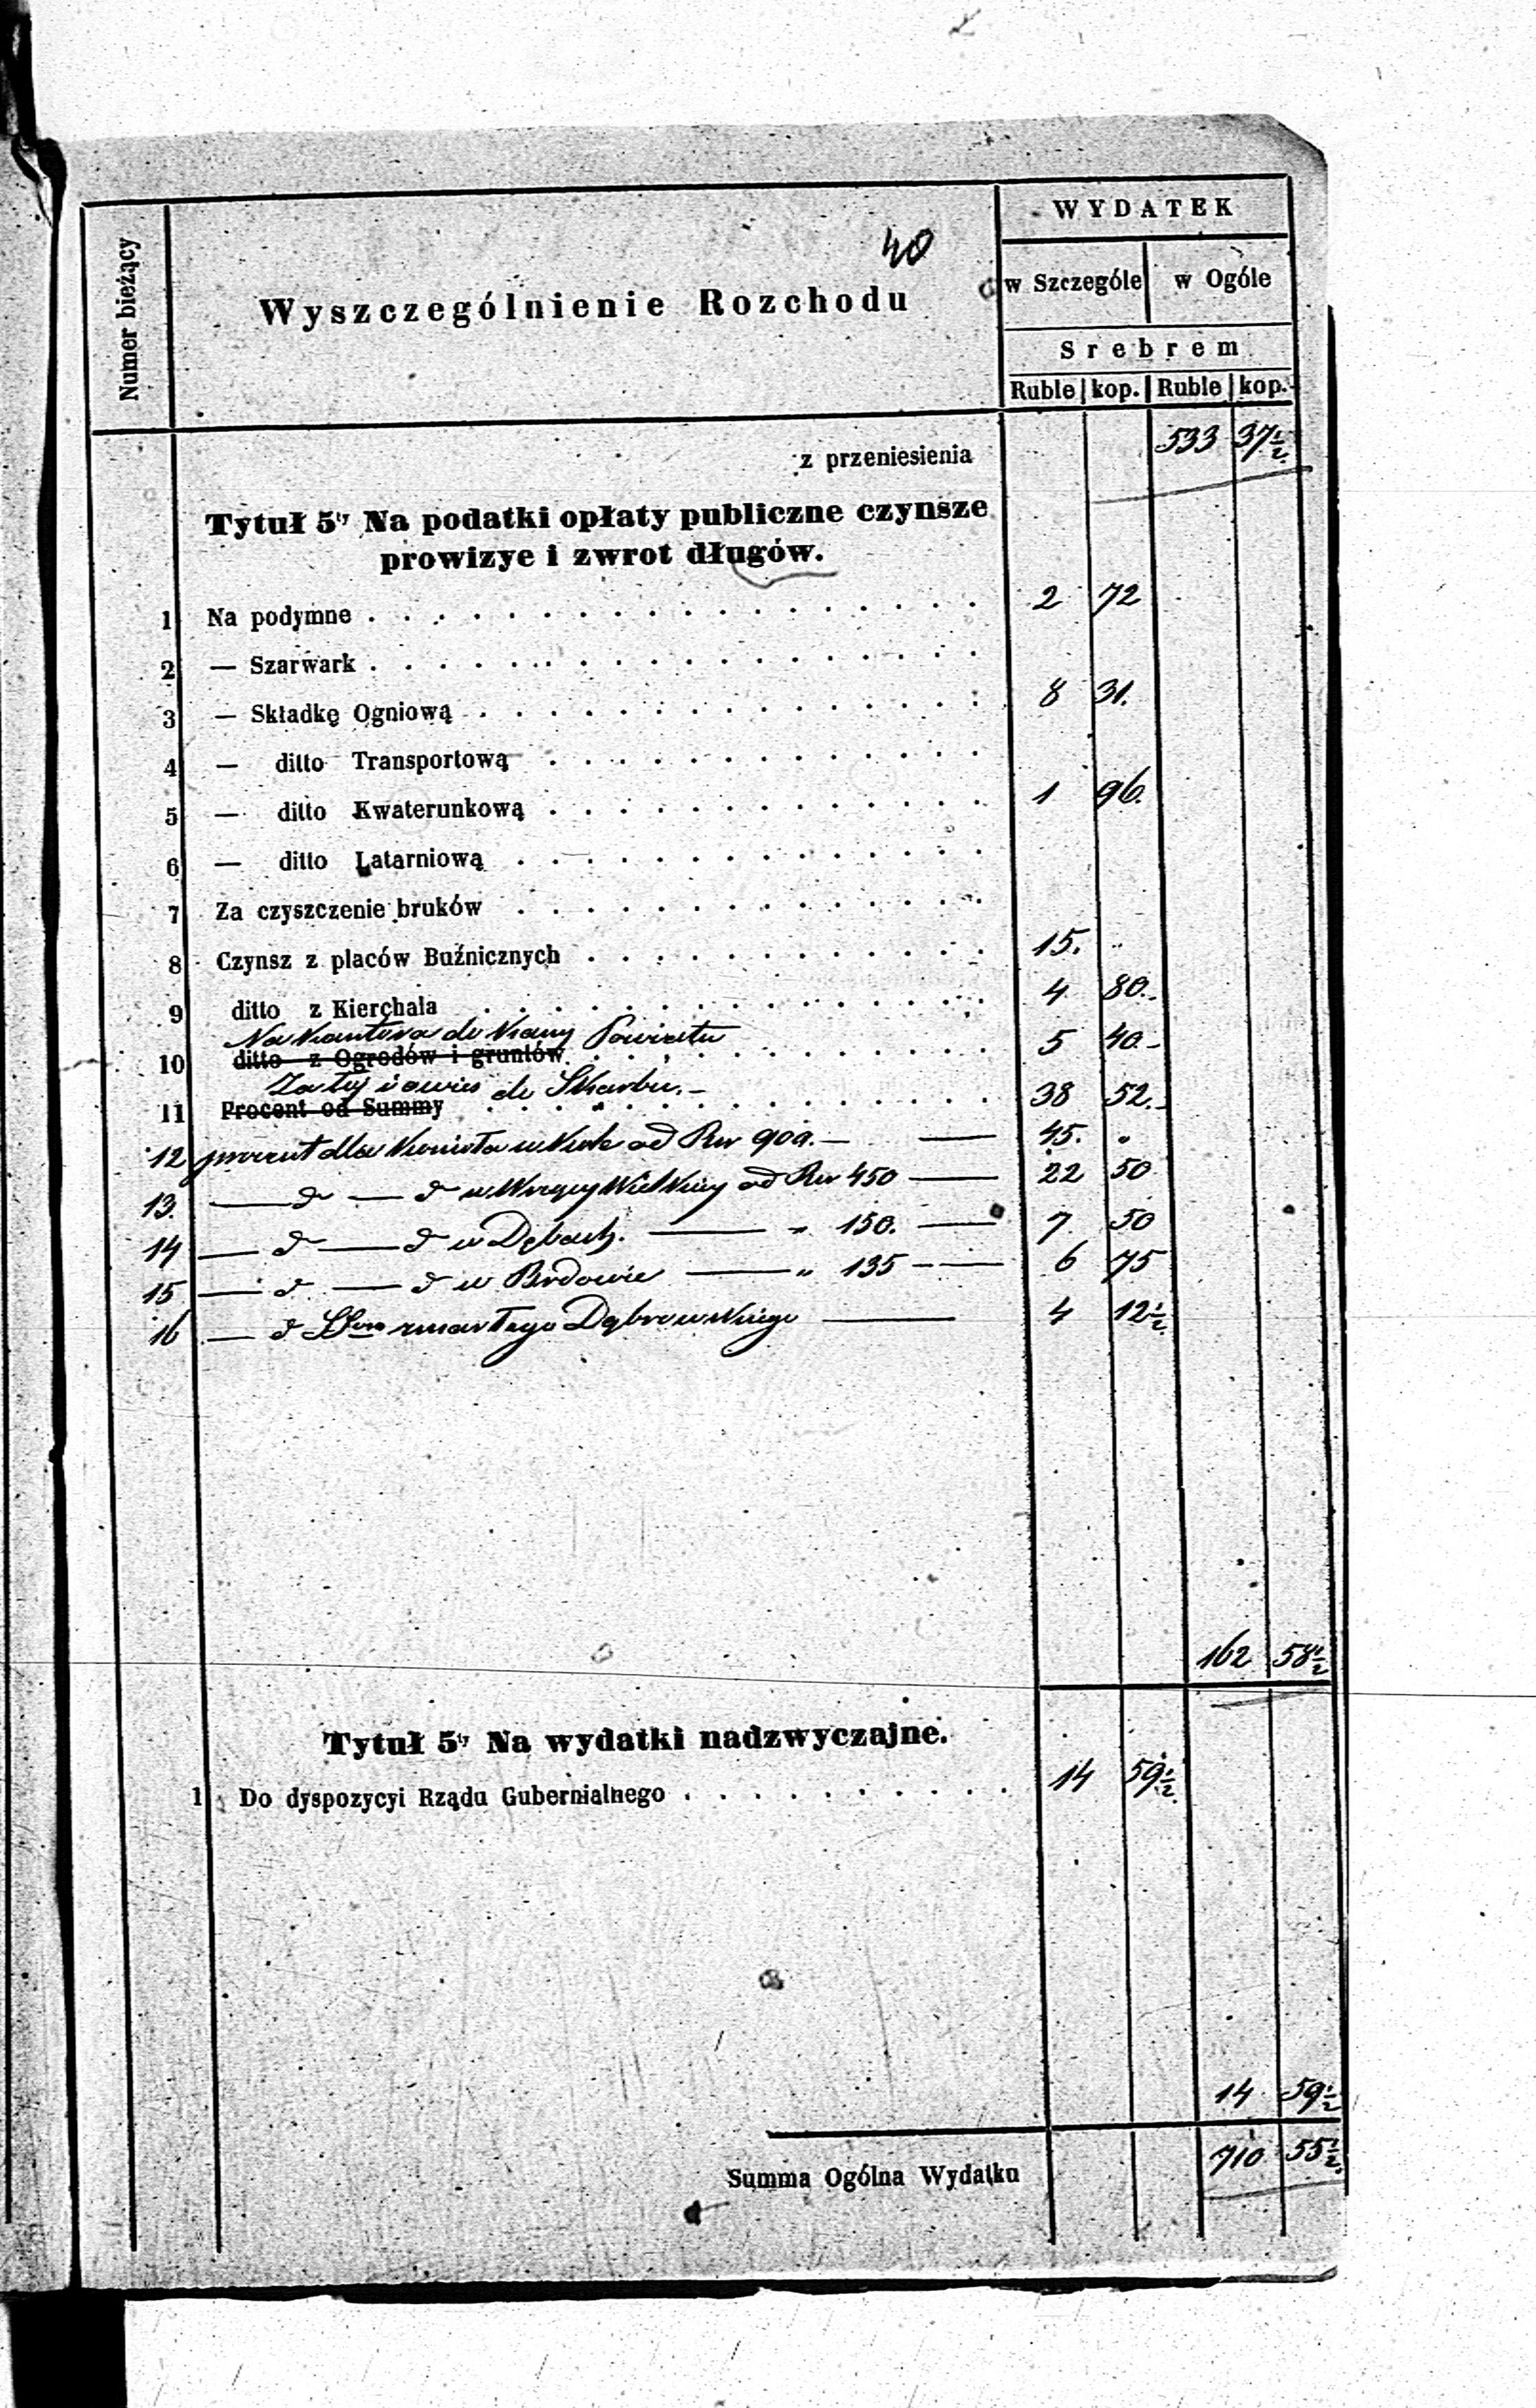 40
Numer bieżący
Wyszczególnienie Rozchodu
WYDATEK
w Szczególe w Ogóle
Srebrem
Ruble kop. Ruble kop.
z przeniesienia 533 37½
Tytuł 5ty Na podatki opłaty publiczne czynsze
prowizye i zwrot długów.
1 Na podymne 2 72
2 — Szarwark
3 — Składkę Ogniową 8 31.
4 — ditto Transportową
5 — ditto Kwaterunkową 1 96.
6 — ditto Latarniową
7 Za czyszczenie bruków
8 Czynsz z placów Buźnicznych 15. "
9 ditto z Kierchala 4 80.
Na Kantora do Powiatu
10 ditto z Ogrodów i gruntów 5 40
do Skarbu.
11 Procent od Summy 38 52.
12 procent dla w Kole od Rsr 900. — 45. "
13. d — d w Wielkiey od Rsr 450 — 22 50
14 — d — d w Dębach. — " 150. — 7. 50
15 — d — d w Brdowie — " 135 — 6 75
16 — d zmarłego Dąbrowskiego — 4 12½
162 58½
Tytuł 5ty Na wydatki nadzwyczajne.
1 Do dyspozycyi Rządu Gubernialnego 14 59½
14 59½
Summa Ogólna Wydatku 710 55½